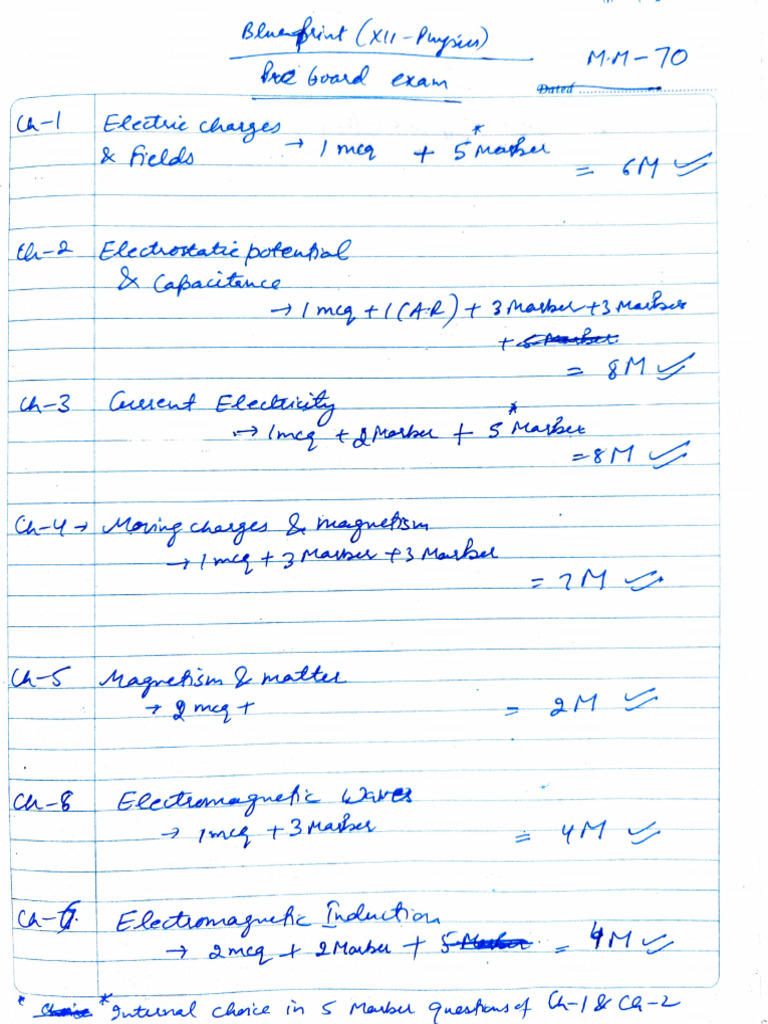 Blueprint (XII - Physics)
Pre board exam
M.M - 70
Dated
Ch-1 Electric charges
& Fields → 1 mcq + 5* Marker
= 6M
Ch-2 Electrostatic potential
& Capacitance
→ 1 mcq + 1 (A-R) + 3 Marker + 3 Marker
+ 5 Marker
= 8M
Ch-3 Current Electricity
→ 1 mcq + 2 Marker + 5* Marker
= 8M
Ch-4 → Moving charges & magnetism
→ 1 mcq + 3 Marker + 3 Marker
= 7M
Ch-5 Magnetism & matter
→ 2 mcq + = 2M
Ch-8 Electromagnetic Waves
→ 1 mcq + 3 Marker = 4M
Ch-6 Electromagnetic Induction
→ 2 mcq + 2 Marker + 5 Marker = 4M
* Choice * Internal choice in 5 Marker questions of Ch-1 & Ch-2